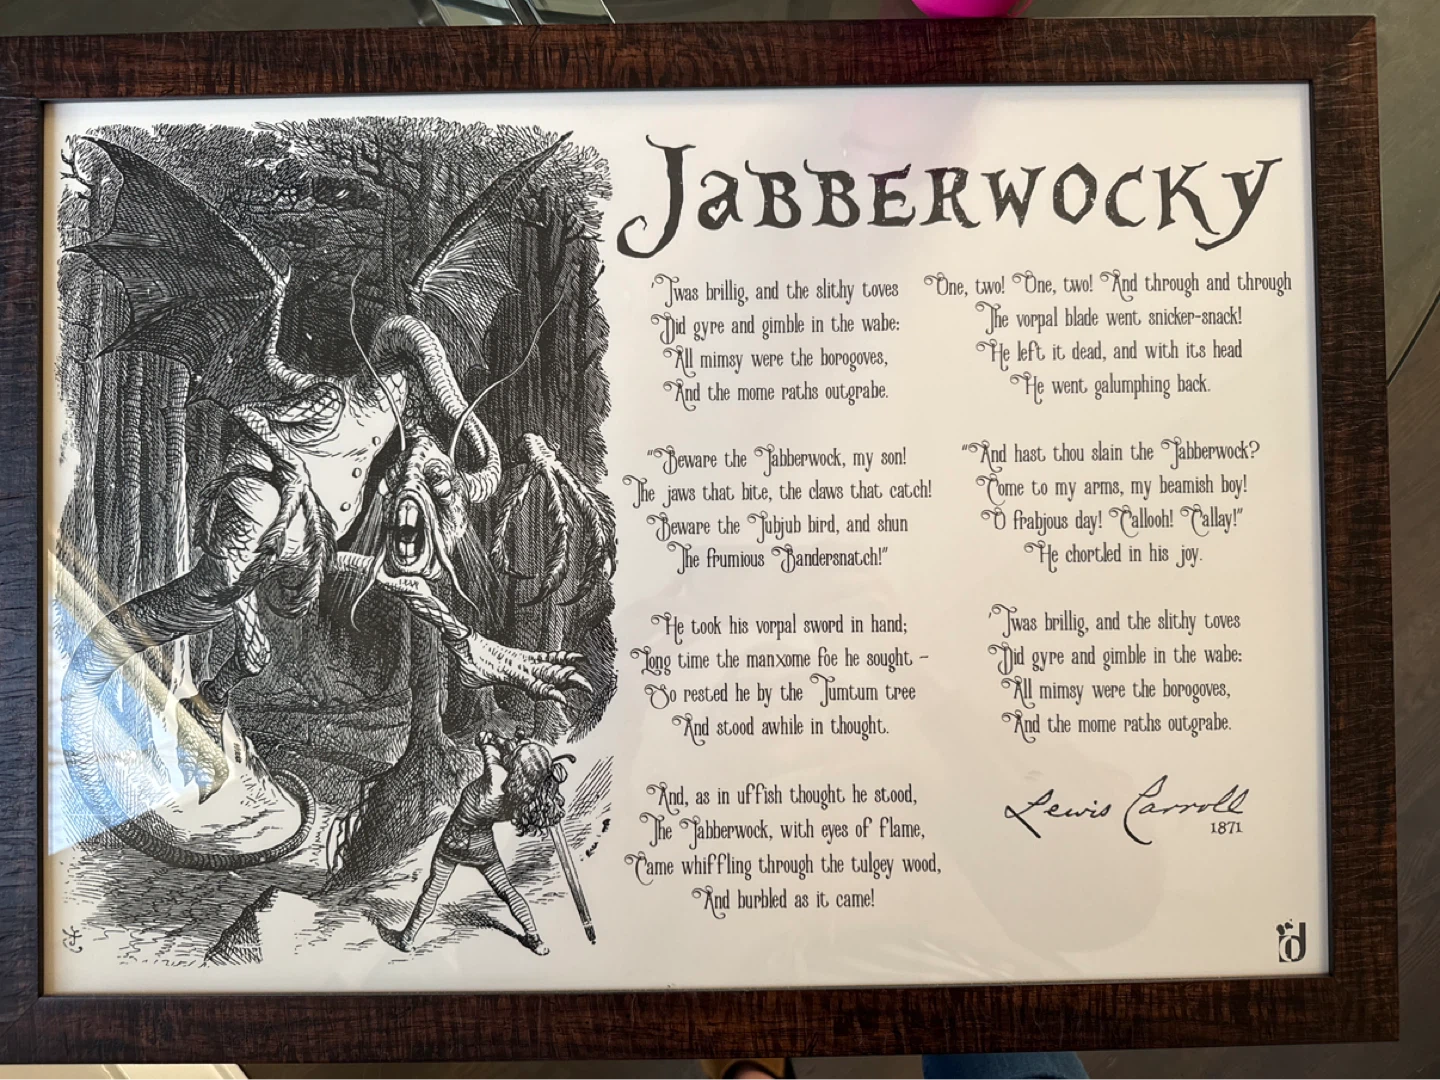 JABBERWOCKY
'Twas brillig, and the slithy toves
Did gyre and gimble in the wabe:
All mimsy were the borogoves,
And the mome raths outgrabe.
“Beware the Jabberwock, my son!
The jaws that bite, the claws that catch!
Beware the Jubjub bird, and shun
The frumious Bandersnatch!”
He took his vorpal sword in hand;
Long time the manxome foe he sought –
So rested he by the Tumtum tree
And stood awhile in thought.
And, as in uffish thought he stood,
The Jabberwock, with eyes of flame,
Came whiffling through the tulgey wood,
And burbled as it came!
One, two! One, two! And through and through
The vorpal blade went snicker-snack!
He left it dead, and with its head
He went galumphing back.
“And hast thou slain the Jabberwock?
Come to my arms, my beamish boy!
O frabjous day! Callooh! Callay!”
He chortled in his joy.
'Twas brillig, and the slithy toves
Did gyre and gimble in the wabe:
All mimsy were the borogoves,
And the mome raths outgrabe.
Lewis Carroll
1871